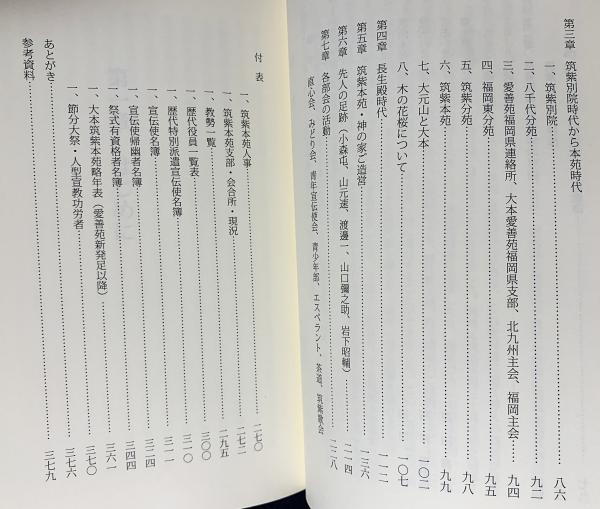 第三章 筑紫別院時代から本苑時代
一、筑紫別院 八六
二、八千代分苑 九二
三、愛善苑福岡県連絡所、大本愛善苑福岡県支部、北九州主会、福岡主会 九四
四、福岡東分苑 九五
五、筑紫分苑 九八
六、筑紫本苑 九九
七、大元山と大本 一〇二
八、木の花桜について 一〇七
第四章 長生殿時代 一一二
第五章 筑紫本苑・神の家ご造営 一三六
第六章 先人の足跡（小森屯、山元速、渡邊一、山口彌之助、岩下昭輔） 二一四
第七章 各部会の活動 二二八
直心会、みどり会、青年宣伝使会、青少年部、エスペラント、茶道、筑紫歌会
付表 二七〇
一、筑紫本苑人事 二七二
一、筑紫本苑支部・会合所・現況 二九五
一、教勢一覧 三〇〇
一、歴代役員一覧表 三一〇
一、歴代特別派遣宣伝使名簿 三一一
一、宣伝使名簿 三二四
一、宣伝使帰幽者名簿 三四四
一、祭式有資格者名簿 三六一
一、大本筑紫本苑略年表（愛善苑新発足以降） 三七〇
一、節分大祭・人型宣教功労者 三七六
あとがき 三七九
参考資料